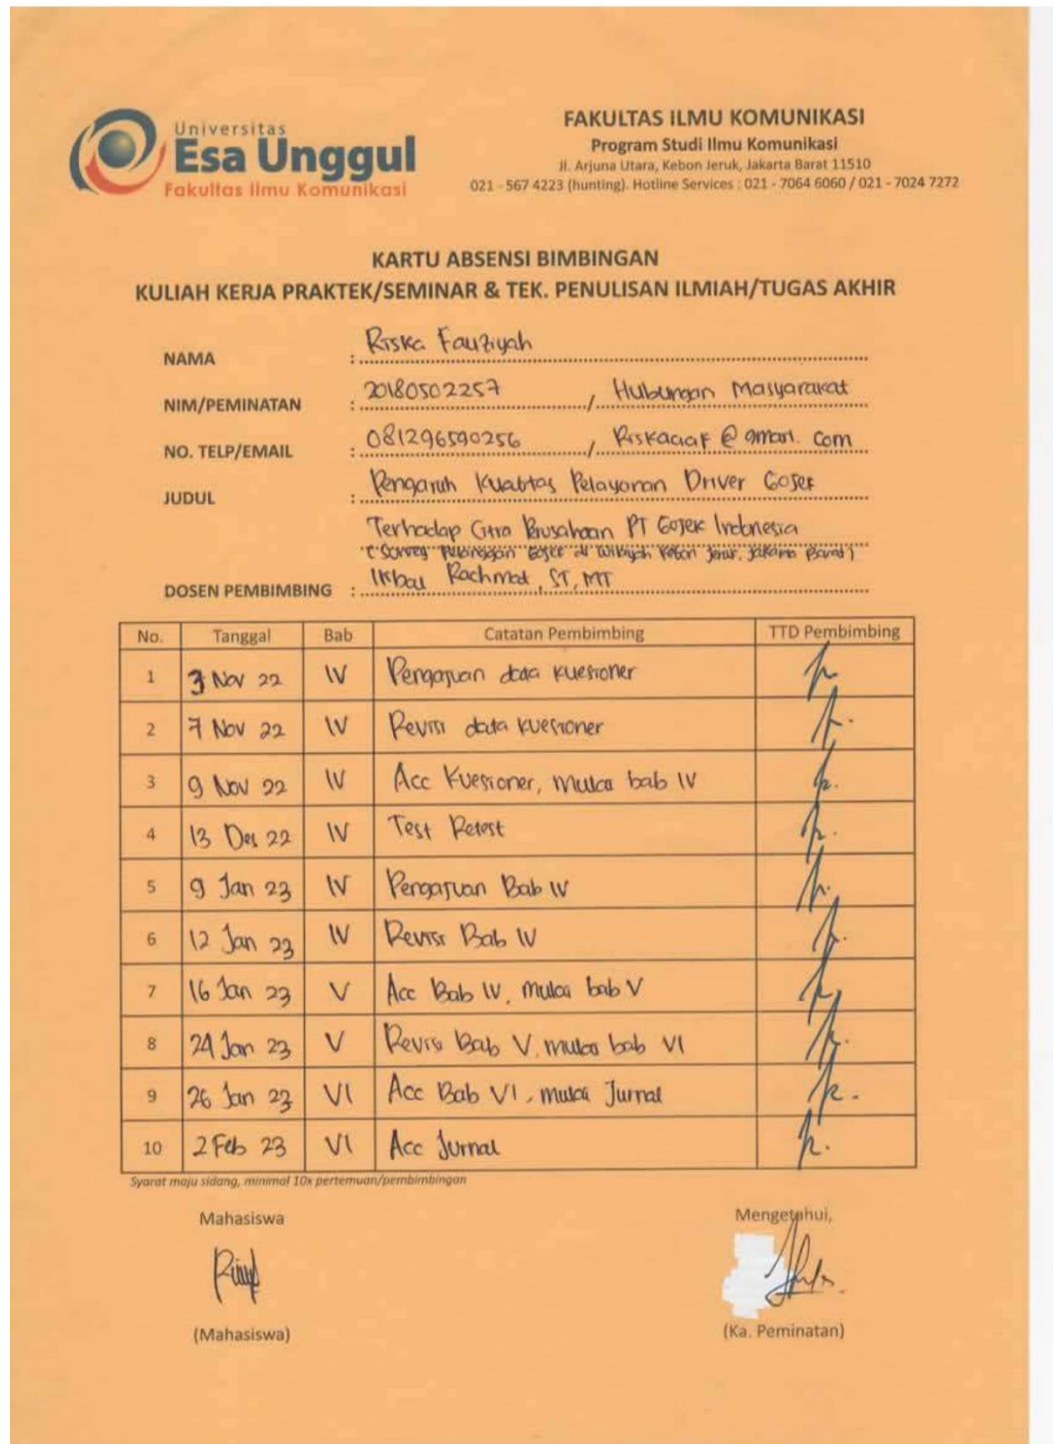 Universitas
Esa Unggul
Fakultas Ilmu Komunikasi
FAKULTAS ILMU KOMUNIKASI
Program Studi Ilmu Komunikasi
Jl. Arjuna Utara, Kebon Jeruk, Jakarta Barat 11510
021 - 567 4223 (hunting). Hotline Services : 021 - 7064 6060 / 021 - 7024 7272
KARTU ABSENSI BIMBINGAN
KULIAH KERJA PRAKTEK/SEMINAR & TEK. PENULISAN ILMIAH/TUGAS AKHIR
NAMA : Riska Fauziyah
NIM/PEMINATAN : 20180502257 / Hubungan Masyarakat
NO. TELP/EMAIL : 081296590256 / @gmail.com
JUDUL : Pengaruh Kualitas Pelayanan Driver Gojek
Terhadap Citra Perusahaan PT Gojek Indonesia
(Survey Pelanggan Gojek di Wilayah Kebon Jeruk, Jakarta Barat)
DOSEN PEMBIMBING : Ikbal Rachmat, ST, MT
No. Tanggal Bab Catatan Pembimbing TTD Pembimbing
1 3 Nov 22 IV Pengajuan data kuesioner
2 7 Nov 22 IV Revisi data kuesioner
3 9 Nov 22 IV Acc Kuesioner, mulai bab IV
4 13 Des 22 IV Test Retest
5 9 Jan 23 IV Pengajuan Bab IV
6 12 Jan 23 IV Revisi Bab IV
7 16 Jan 23 V Acc Bab IV, mulai bab V
8 24 Jan 23 V Revisi Bab V, mulai bab VI
9 26 Jan 23 VI Acc Bab VI, mulai Jurnal
10 2 Feb 23 VI Acc Jurnal
Syarat maju sidang, minimal 10x pertemuan/pembimbingan
Mahasiswa Mengetahui,
(Mahasiswa) (Ka. Peminatan)